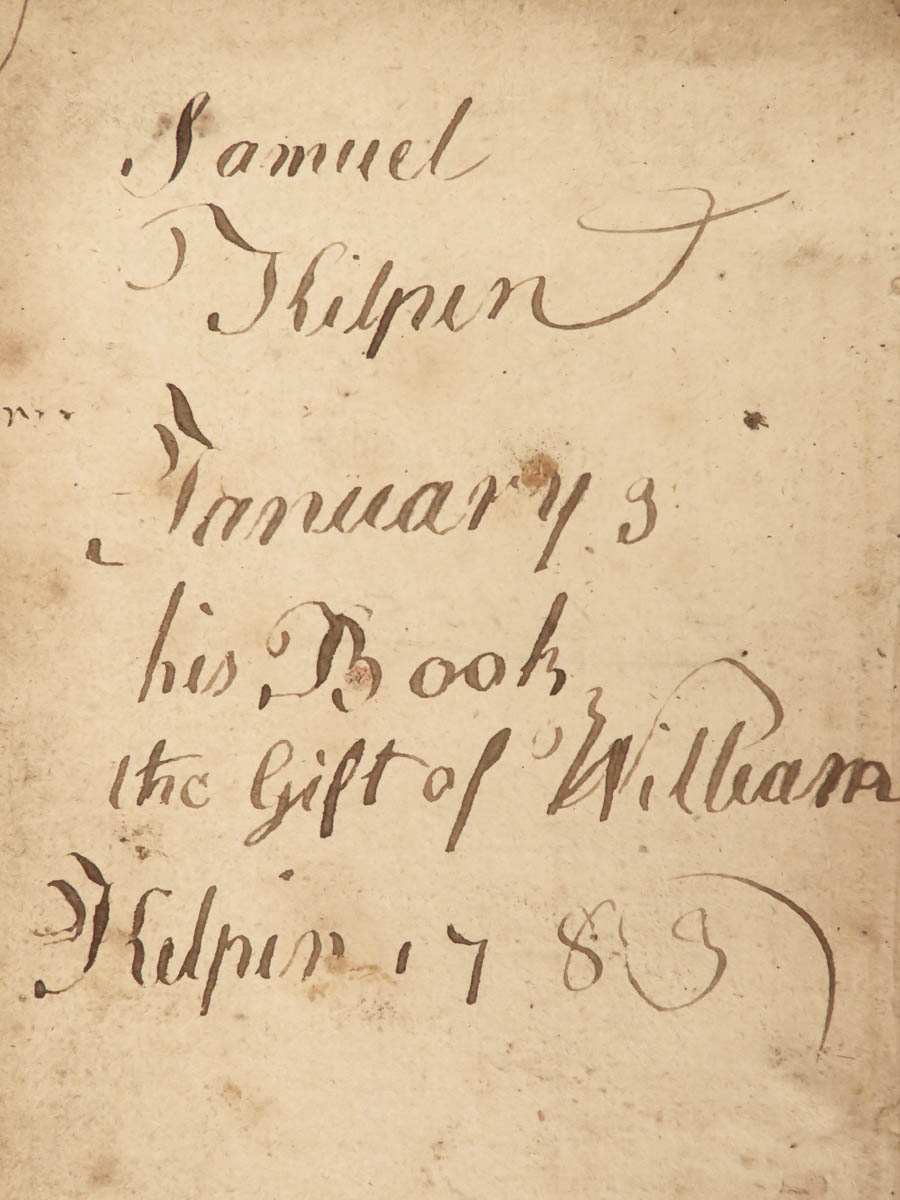 Samuel
Kilpin
January 3
his Book
the Gift of William
Kilpin 1783